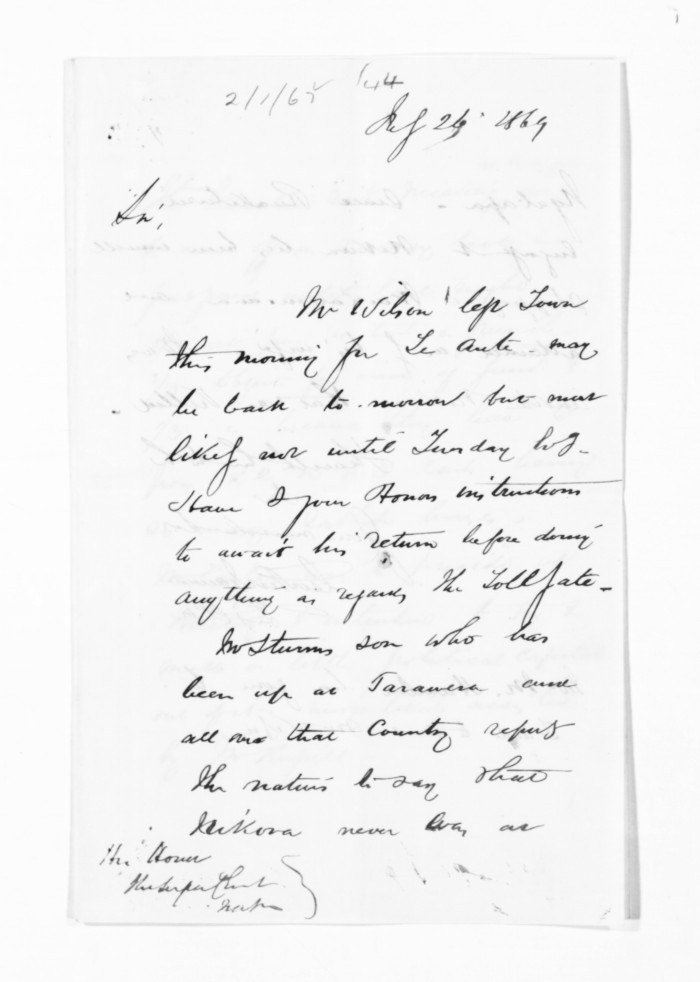 2/1/65 144
July 26 1869
Sir,
Mr Wilson left Town
this morning for Te Aute - may
be back to-morrow but most
likely not until Tuesday
Have I your Honors instructions
to await his return before doing
anything as regards the Toll Gate -
Mr Sturms son who has
been up at Tarawera and
all over that Country reports
the natives to say that
Nikora never was at
His Honor
The Superintendent
Napier